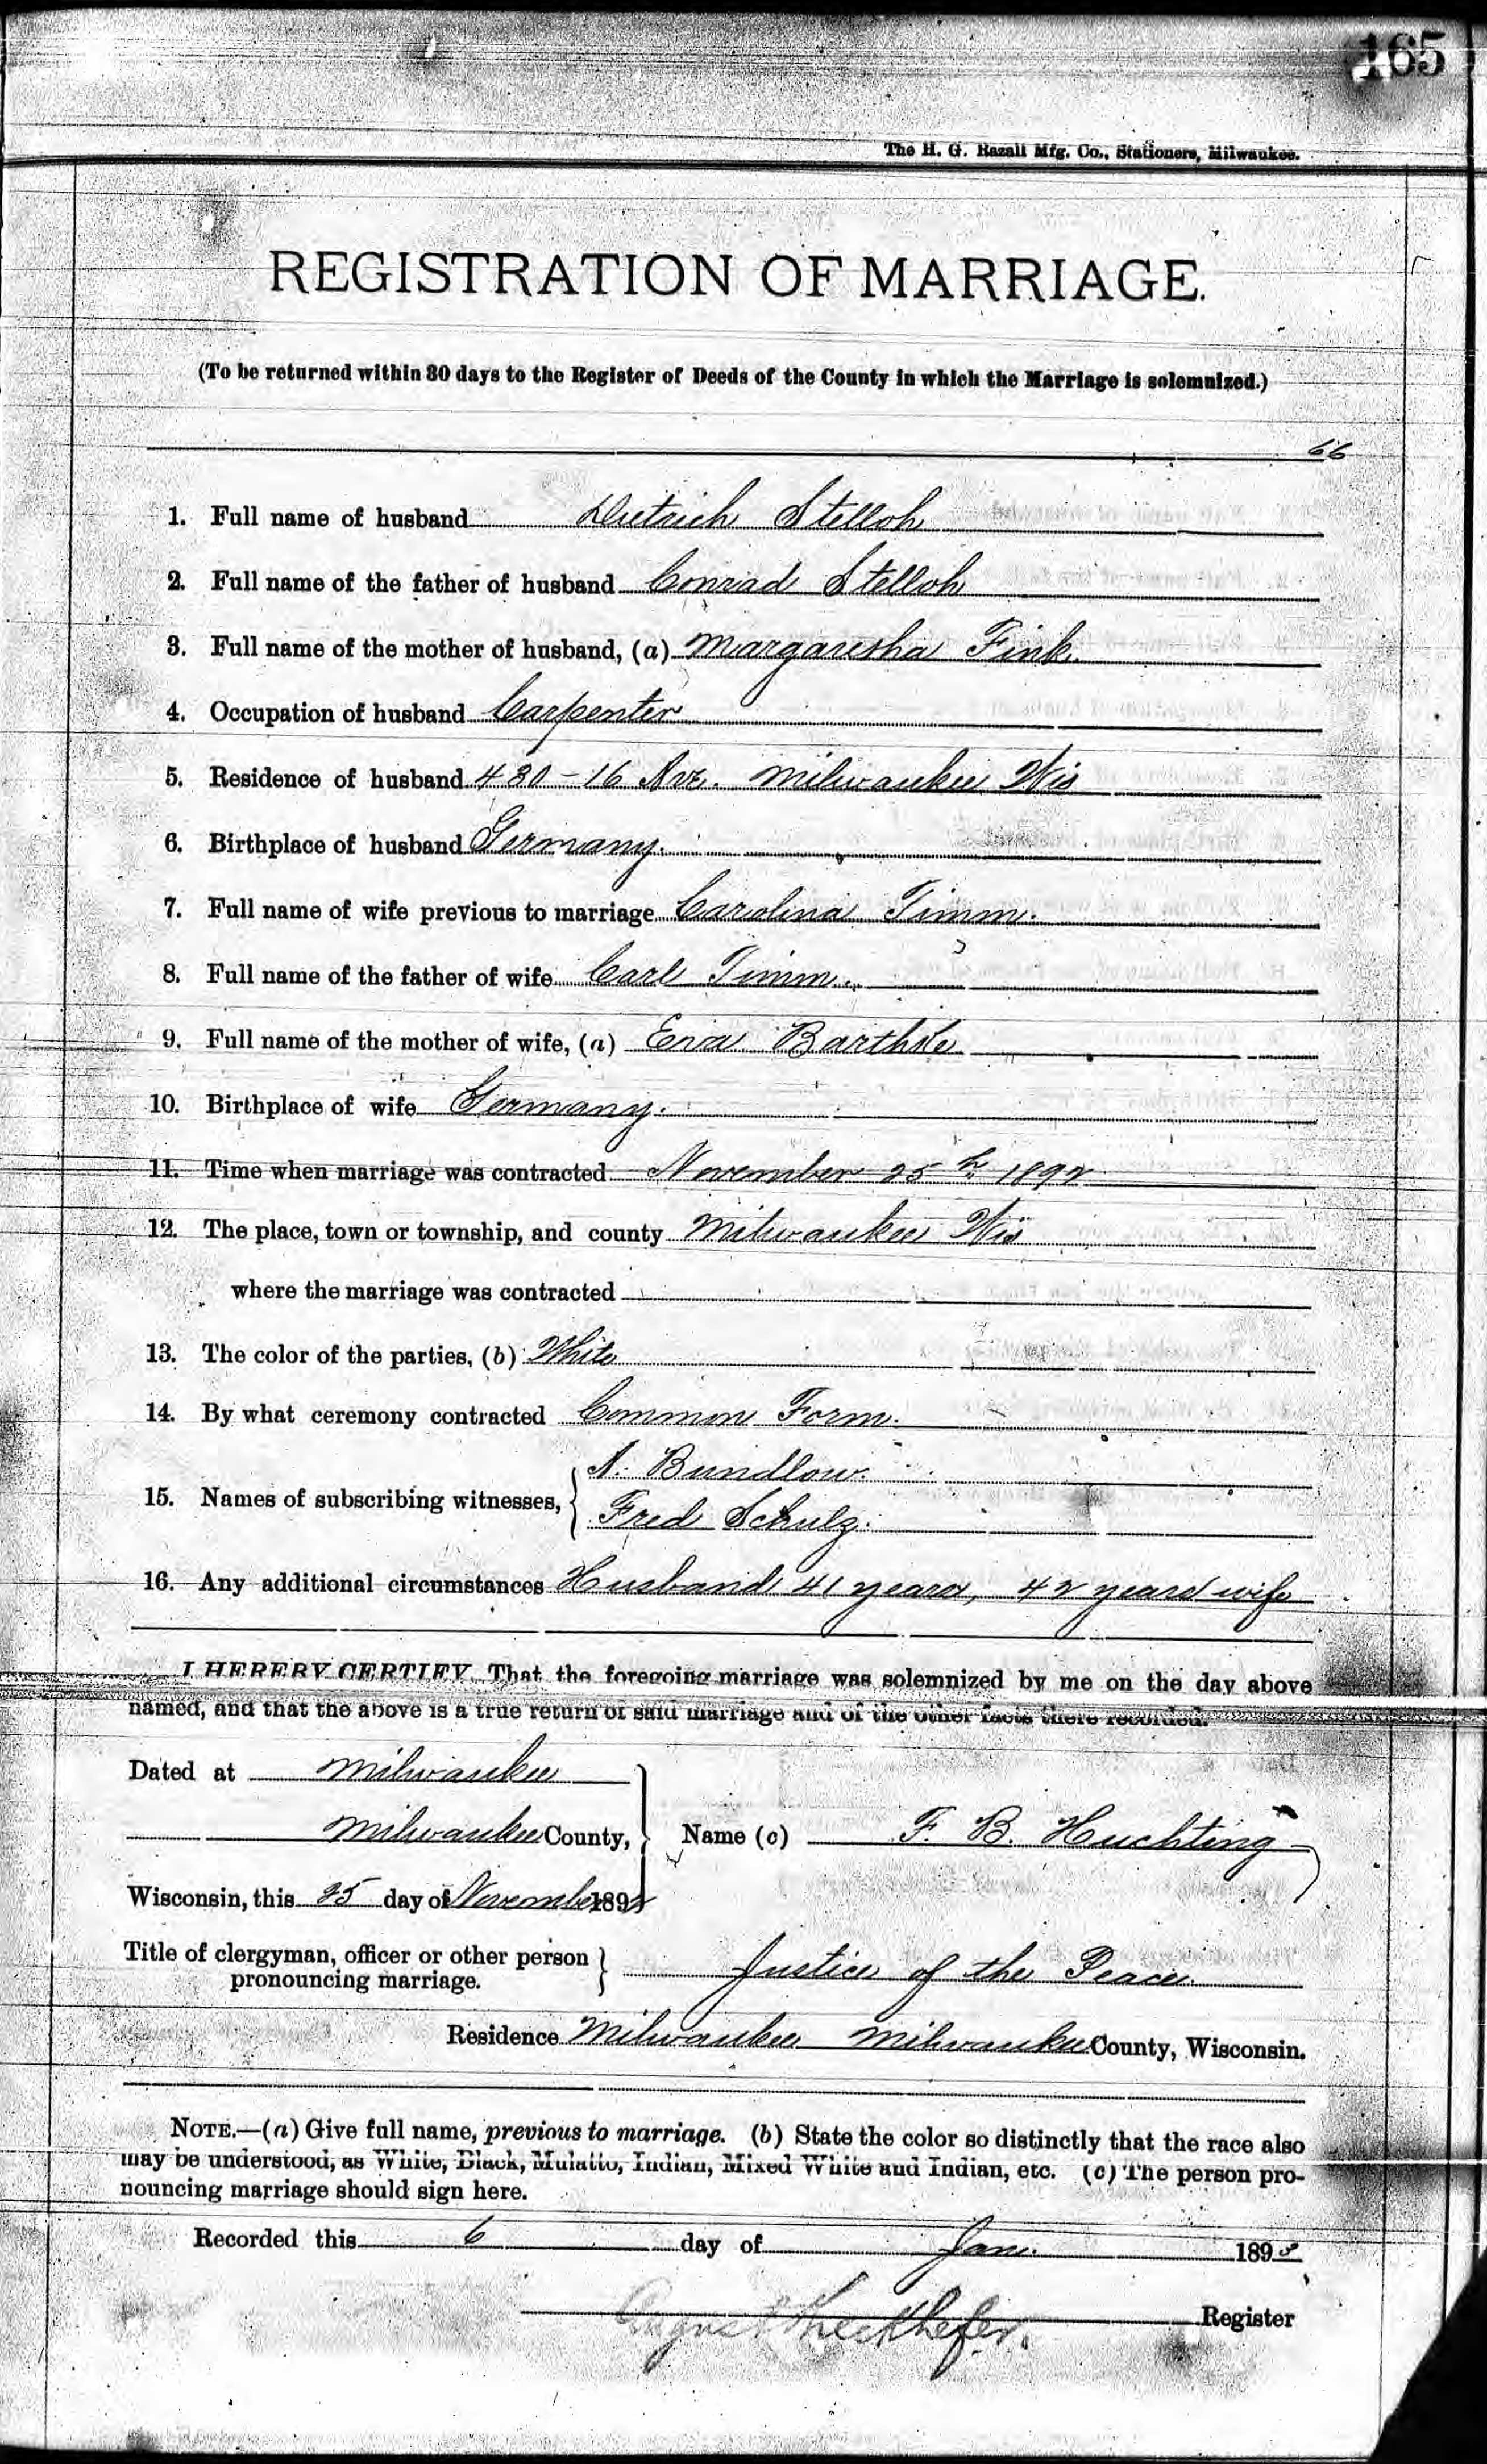 165
The H. G. Razall Mfg. Co., Stationers, Milwaukee.
REGISTRATION OF MARRIAGE.
(To be returned within 30 days to the Register of Deeds of the County in which the Marriage is solemnized.)
66
1. Full name of husband Dietrich Stelloh
2. Full name of the father of husband Conrad Stelloh
3. Full name of the mother of husband, (a) Margaretha Fink.
4. Occupation of husband Carpenter
5. Residence of husband 480-16 Ave. Milwaukee Wis
6. Birthplace of husband Germany.
7. Full name of wife previous to marriage Carolina Timm.
8. Full name of the father of wife Carl Timm.
9. Full name of the mother of wife, (a) Barthke
10. Birthplace of wife Germany.
11. Time when marriage was contracted November 25th 1892
12. The place, town or township, and county Milwaukee Wis
where the marriage was contracted
13. The color of the parties, (b) White
14. By what ceremony contracted Common Form.
A. Bundlow.
15. Names of subscribing witnesses,
Fred Schulz.
16. Any additional circumstances Husband 41 years, 42 years wife
I HEREBY CERTIFY, That the foregoing marriage was solemnized by me on the day above
named, and that the above is a true return of said marriage and of the other facts there recorded.
Dated at Milwaukee
Milwaukee County, Name (c) F. B. Huchting
Wisconsin, this 25 day of November 1892
Title of clergyman, officer or other person
pronouncing marriage. Justice of the Peace.
Residence Milwaukee Milwaukee County, Wisconsin.
NOTE.—(a) Give full name, previous to marriage. (b) State the color so distinctly that the race also
may be understood, as White, Black, Mulatto, Indian, Mixed White and Indian, etc. (c) The person pro-
nouncing marriage should sign here.
Recorded this 6 day of Jan. 1893
August Kieckhefer. Register